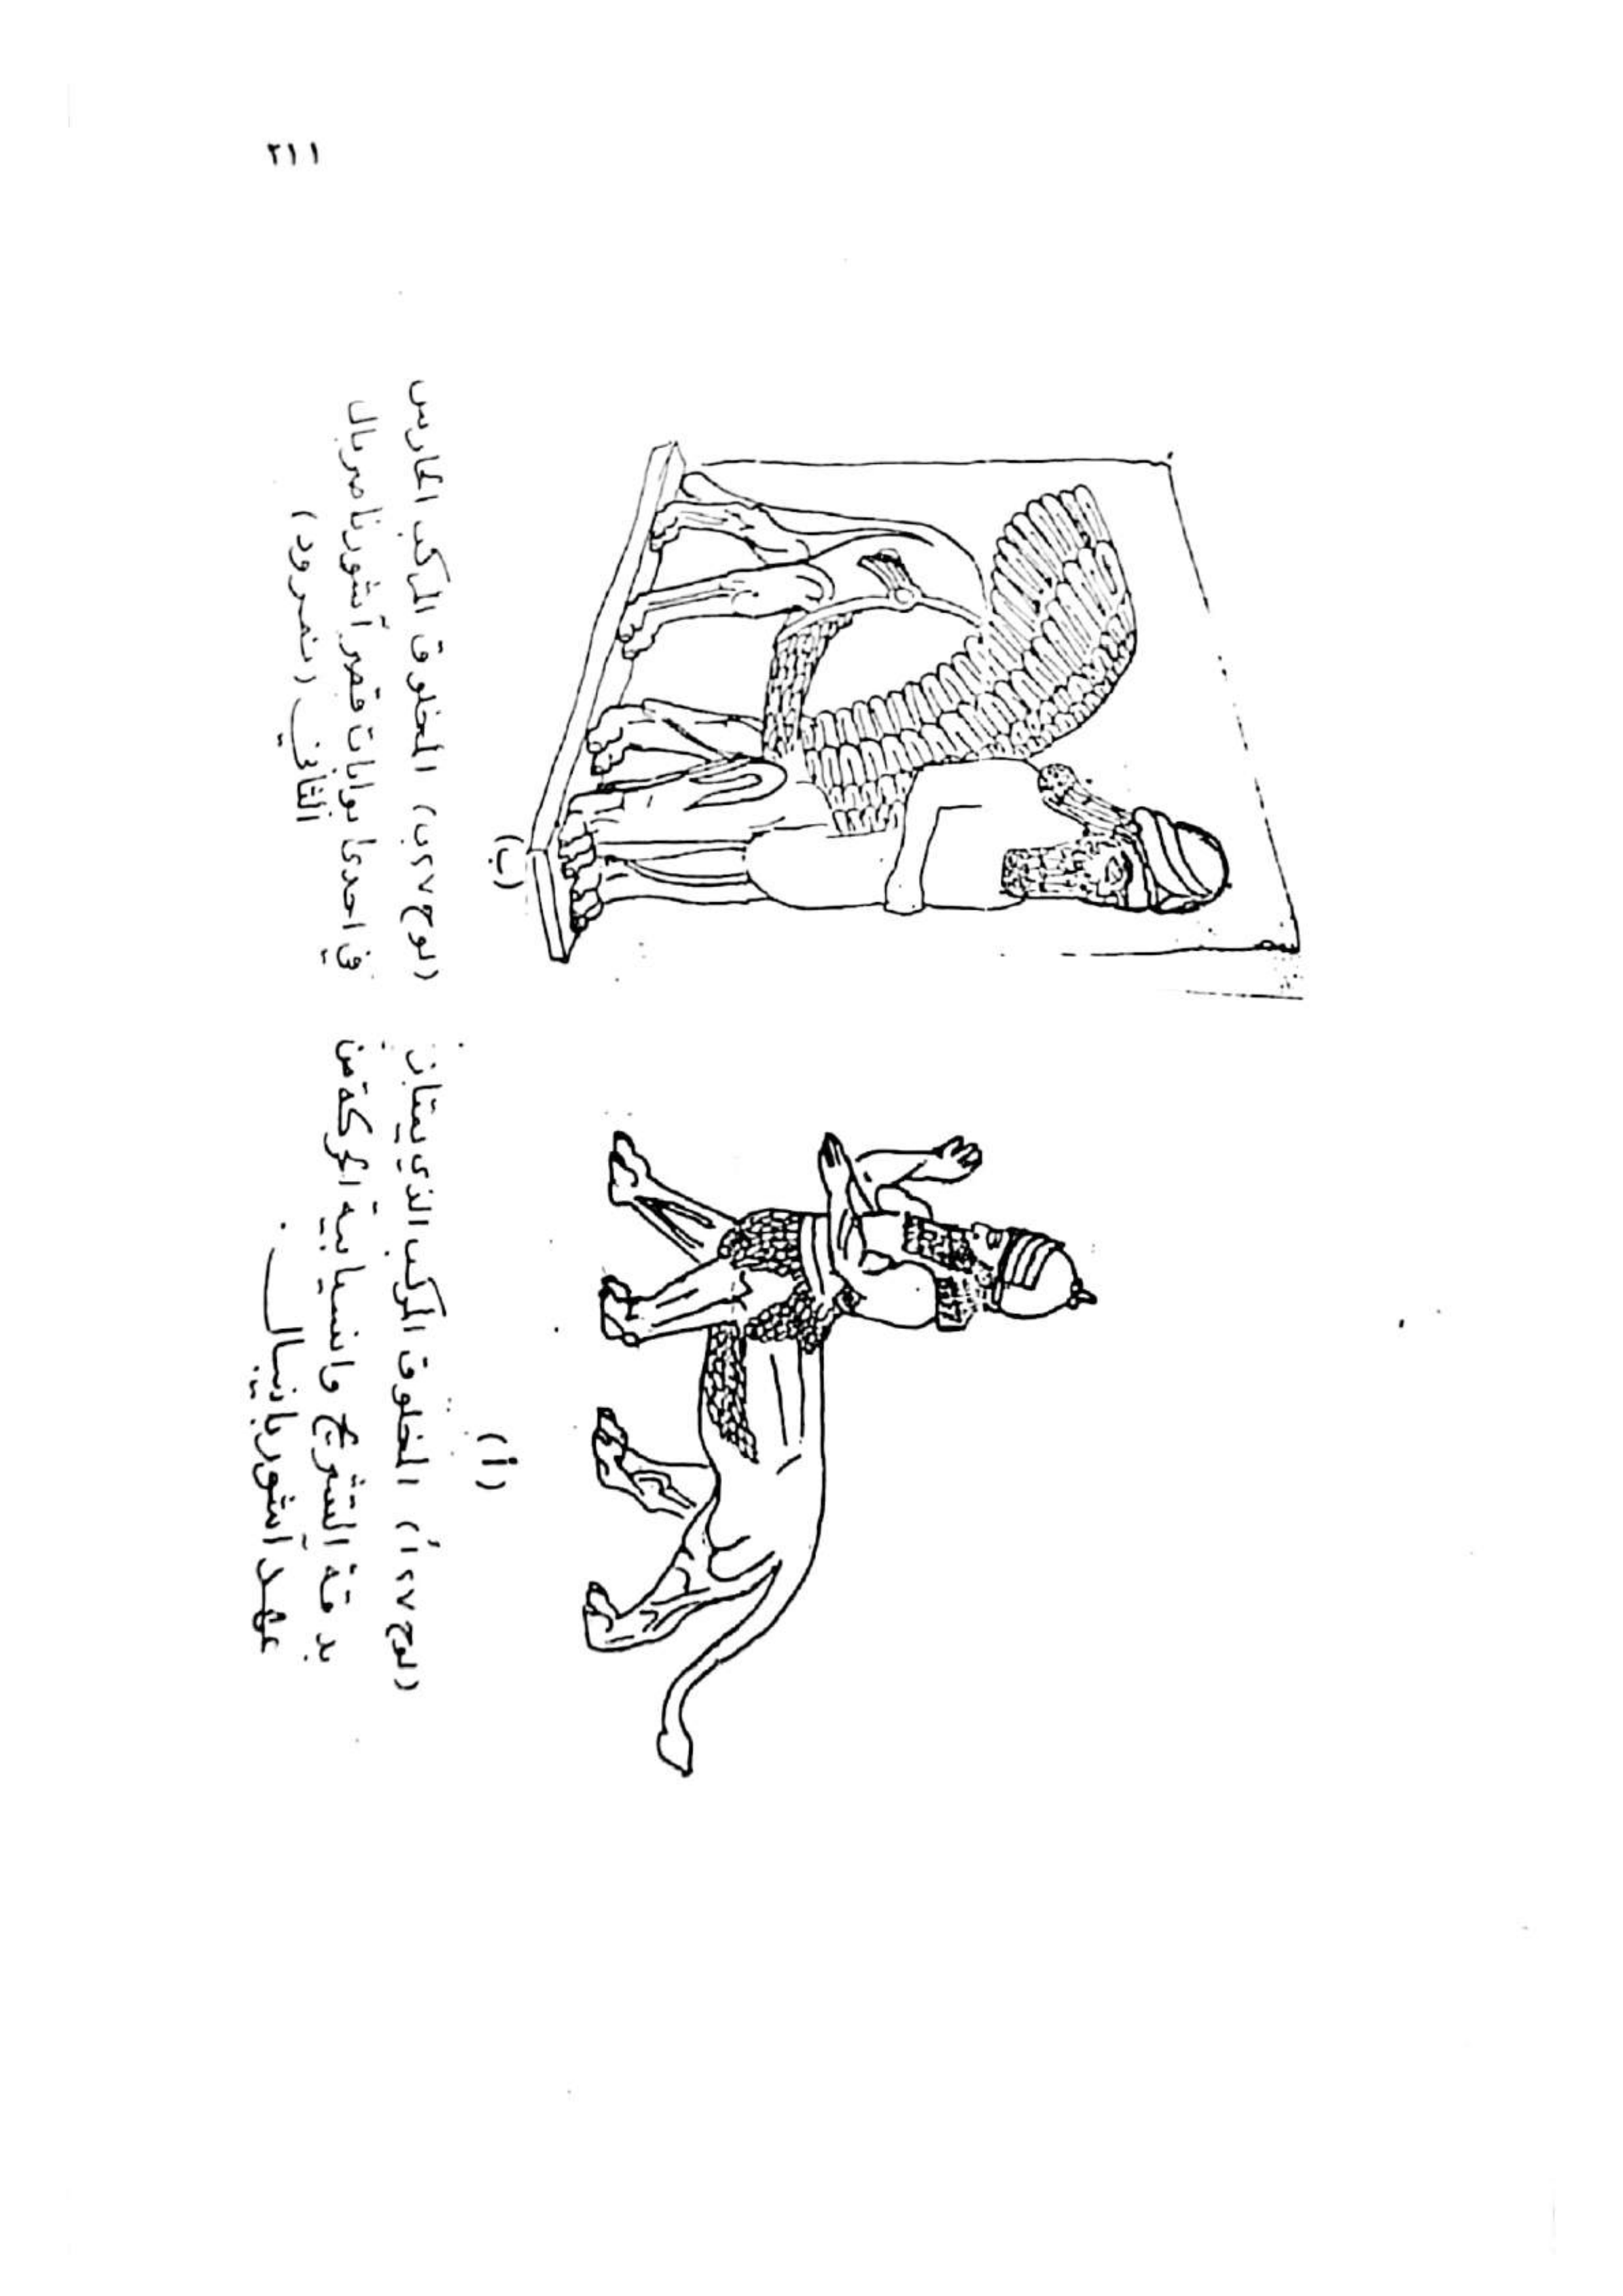 ٢١١
(أ)
(لوح ٢٧أ) المخلوق المركب الذي يمتاز
بدقة التشريح وانسيابية الحركة من
عهد آشوربانيبال .
(ب)
(لوح ٢٧ب) المخلوق المركب الحارس
في احدى بوابات قصر آشورناصربال
الثاني (نمرود)